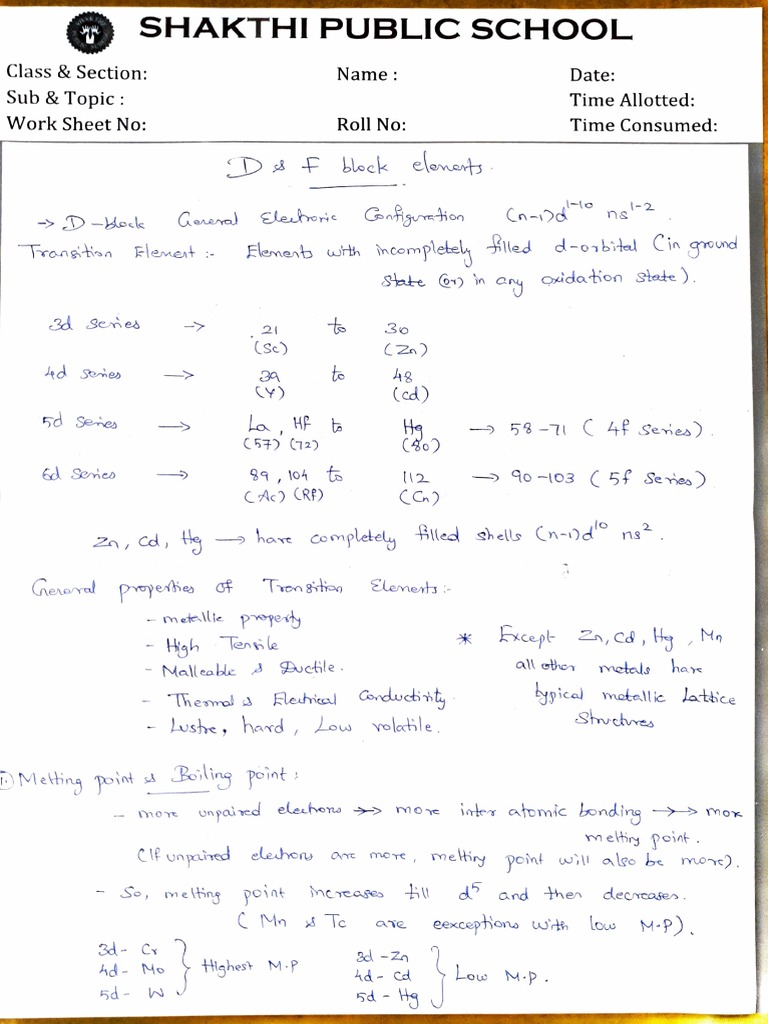 SHAKTHI PUBLIC SCHOOL
Class & Section: Name : Date:
Sub & Topic : Time Allotted:
Work Sheet No: Roll No: Time Consumed:
D & F block elements.
→ D-block General Electronic Configuration (n-1)d¹⁻¹⁰ ns¹⁻².
Transition Element :- Elements with incompletely filled d-orbital (in ground
state (or) in any oxidation state).
3d series → 21 to 30
(Sc) (Zn)
4d series → 39 to 48
(Y) (Cd)
5d series → La, Hf to Hg → 58-71 ( 4f series).
(57) (72) (80)
6d series → 89, 104 to 112 → 90-103 ( 5f series)
(Ac) (Rf) (Cn)
Zn, Cd, Hg → have completely filled shells (n-1)d¹⁰ ns².
General properties of Transition Elements:-
- metallic property
- High Tensile
- Malleable & Ductile.
- Thermal & Electrical Conductivity.
- Lustre, hard, Low volatile.
* Except Zn, Cd, Hg, Mn
all other metals have
typical metallic Lattice
Structures
1. Melting point & Boiling point:
- more unpaired electrons →→ more inter atomic bonding →→ more
melting point.
(If unpaired electrons are more, melting point will also be more).
- So, melting point increases till d⁵ and then decreases.
( Mn & Tc are eexceptions with low M.P).
3d - Cr
4d - Mo } Highest M.P
5d - W
3d - Zn
4d - Cd } Low M.P.
5d - Hg